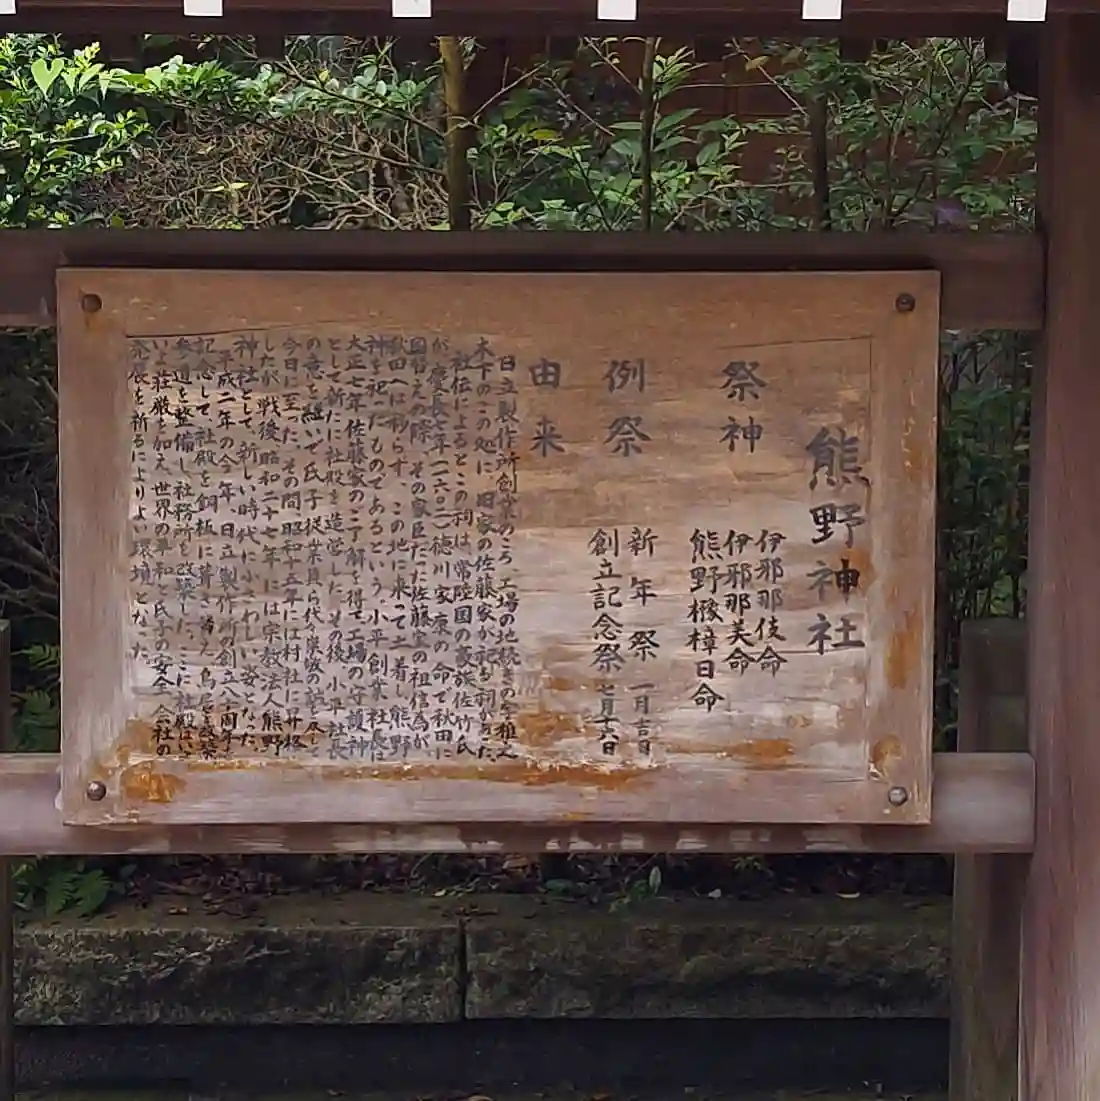 熊野神社
祭神
伊邪那伎命
伊邪那美命
熊野櫲樟日命
例祭
新年祭 一月吉日
創立記念祭 七月十六日
由来
日立製作所創業のころ、工場の地続きの
木下のこの処に、旧家の佐藤家が祀る祠があった。
社伝によるとこの祠は、常陸国の豪族佐竹氏
が、慶長七年(一六〇二)徳川家康の命で秋田に
国替えの際、その家臣だった佐藤家の祖信為が、
秋田へは移らず、この地に来って土着し、熊野
神を祀ったものであるという。小平創業社長は
大正七年佐藤家のご了解を得て、工場の守護神
として新たに社殿を造営した。その後、小平社長
の意を継いで氏子従業員ら代々崇敬の誠を尽し
今日に至った。その間昭和十五年には村社に昇格
したが、戦後昭和二十七年には宗教法人熊野
神社として、新しい時代にふさわしい姿となった。
平成二年の今年、日立製作所の創立八十周年を
記念して社殿を銅板に葺き替え、鳥居を改築
参道を整備し、社務所を改築した。ここに社殿はいよ
いよ荘厳を加え、世界の平和と氏子の安全、会社の
発展を祈るによりよい環境となった。